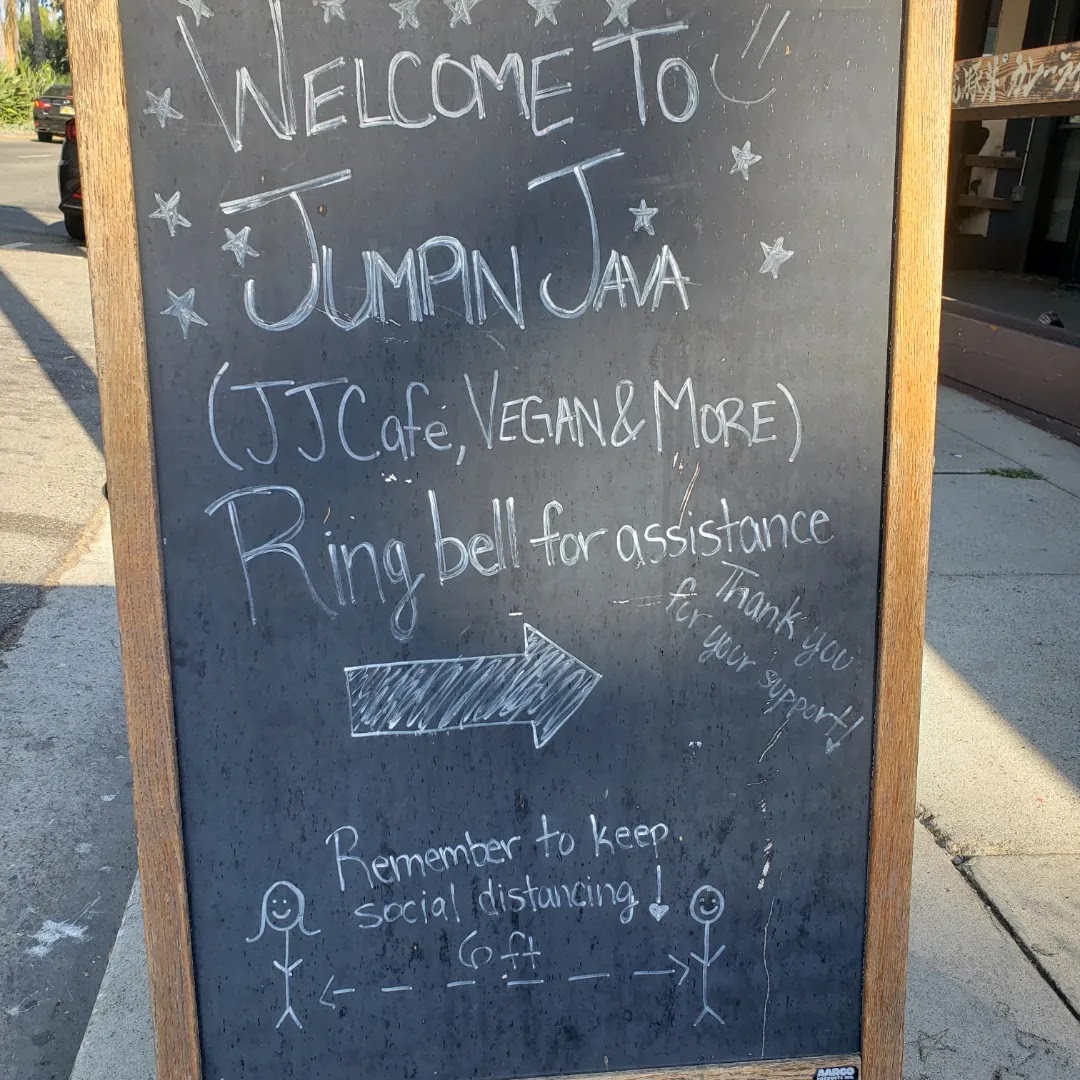 WELCOME TO
JUMPIN JAVA
(JJ Café, VEGAN & MORE)
Ring bell for assistance
Thank you
for your support!
Remember to keep
social distancing!
6ft
AARCO
PRODUCTS INC.